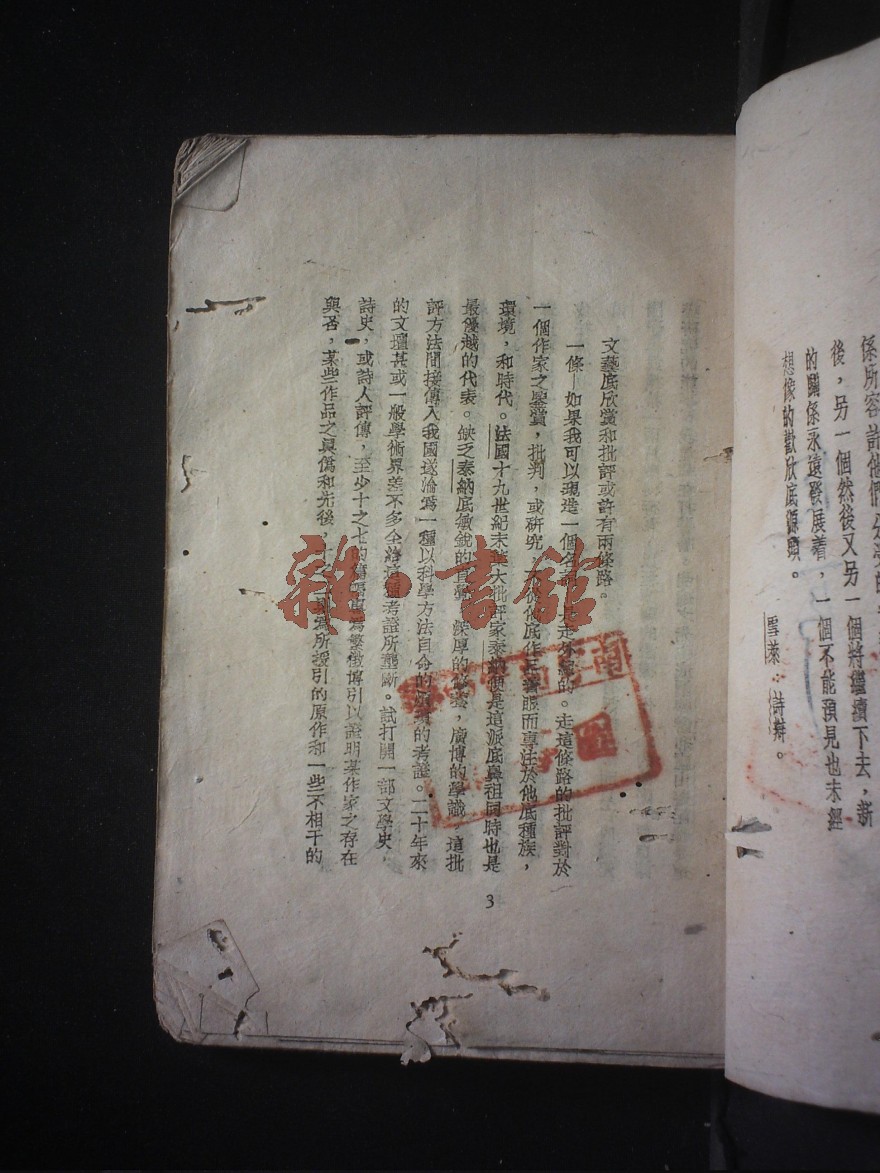 係所容許他們
後，另一個然後又另一個將繼續下去，新
的關係永遠發展着，一個不能預見也未經
想像的歡欣底源頭。
雪萊：詩辯。
文藝底欣賞和批評或許有兩條路。
一條—如果我可以造一個名詞 走 的。走這條路的批評對於
一個作家之鑒賞，批判，或研究，不從他底作品著眼而專注於他底種族，
環境，和時代。法國十九世紀末葉大批評家泰納便是這派底鼻祖同時也是
最優越的代表。缺乏泰納底敏銳的直覺，深厚的修養，廣博的學識，這批
評方法間接傳入我國遂淪爲一種以科學方法自命的 的考證。二十年來
的文壇甚或一般學術界差不多全給這種考證所壟斷。試打開一部文學史，
詩史，或詩人評傳，至少十之七的篇幅 爲繁徵博引以證明某作家之存在
與否，某些作品之眞僞和先後， 爲所援引的原作和一些不相干的
3
雜·書館